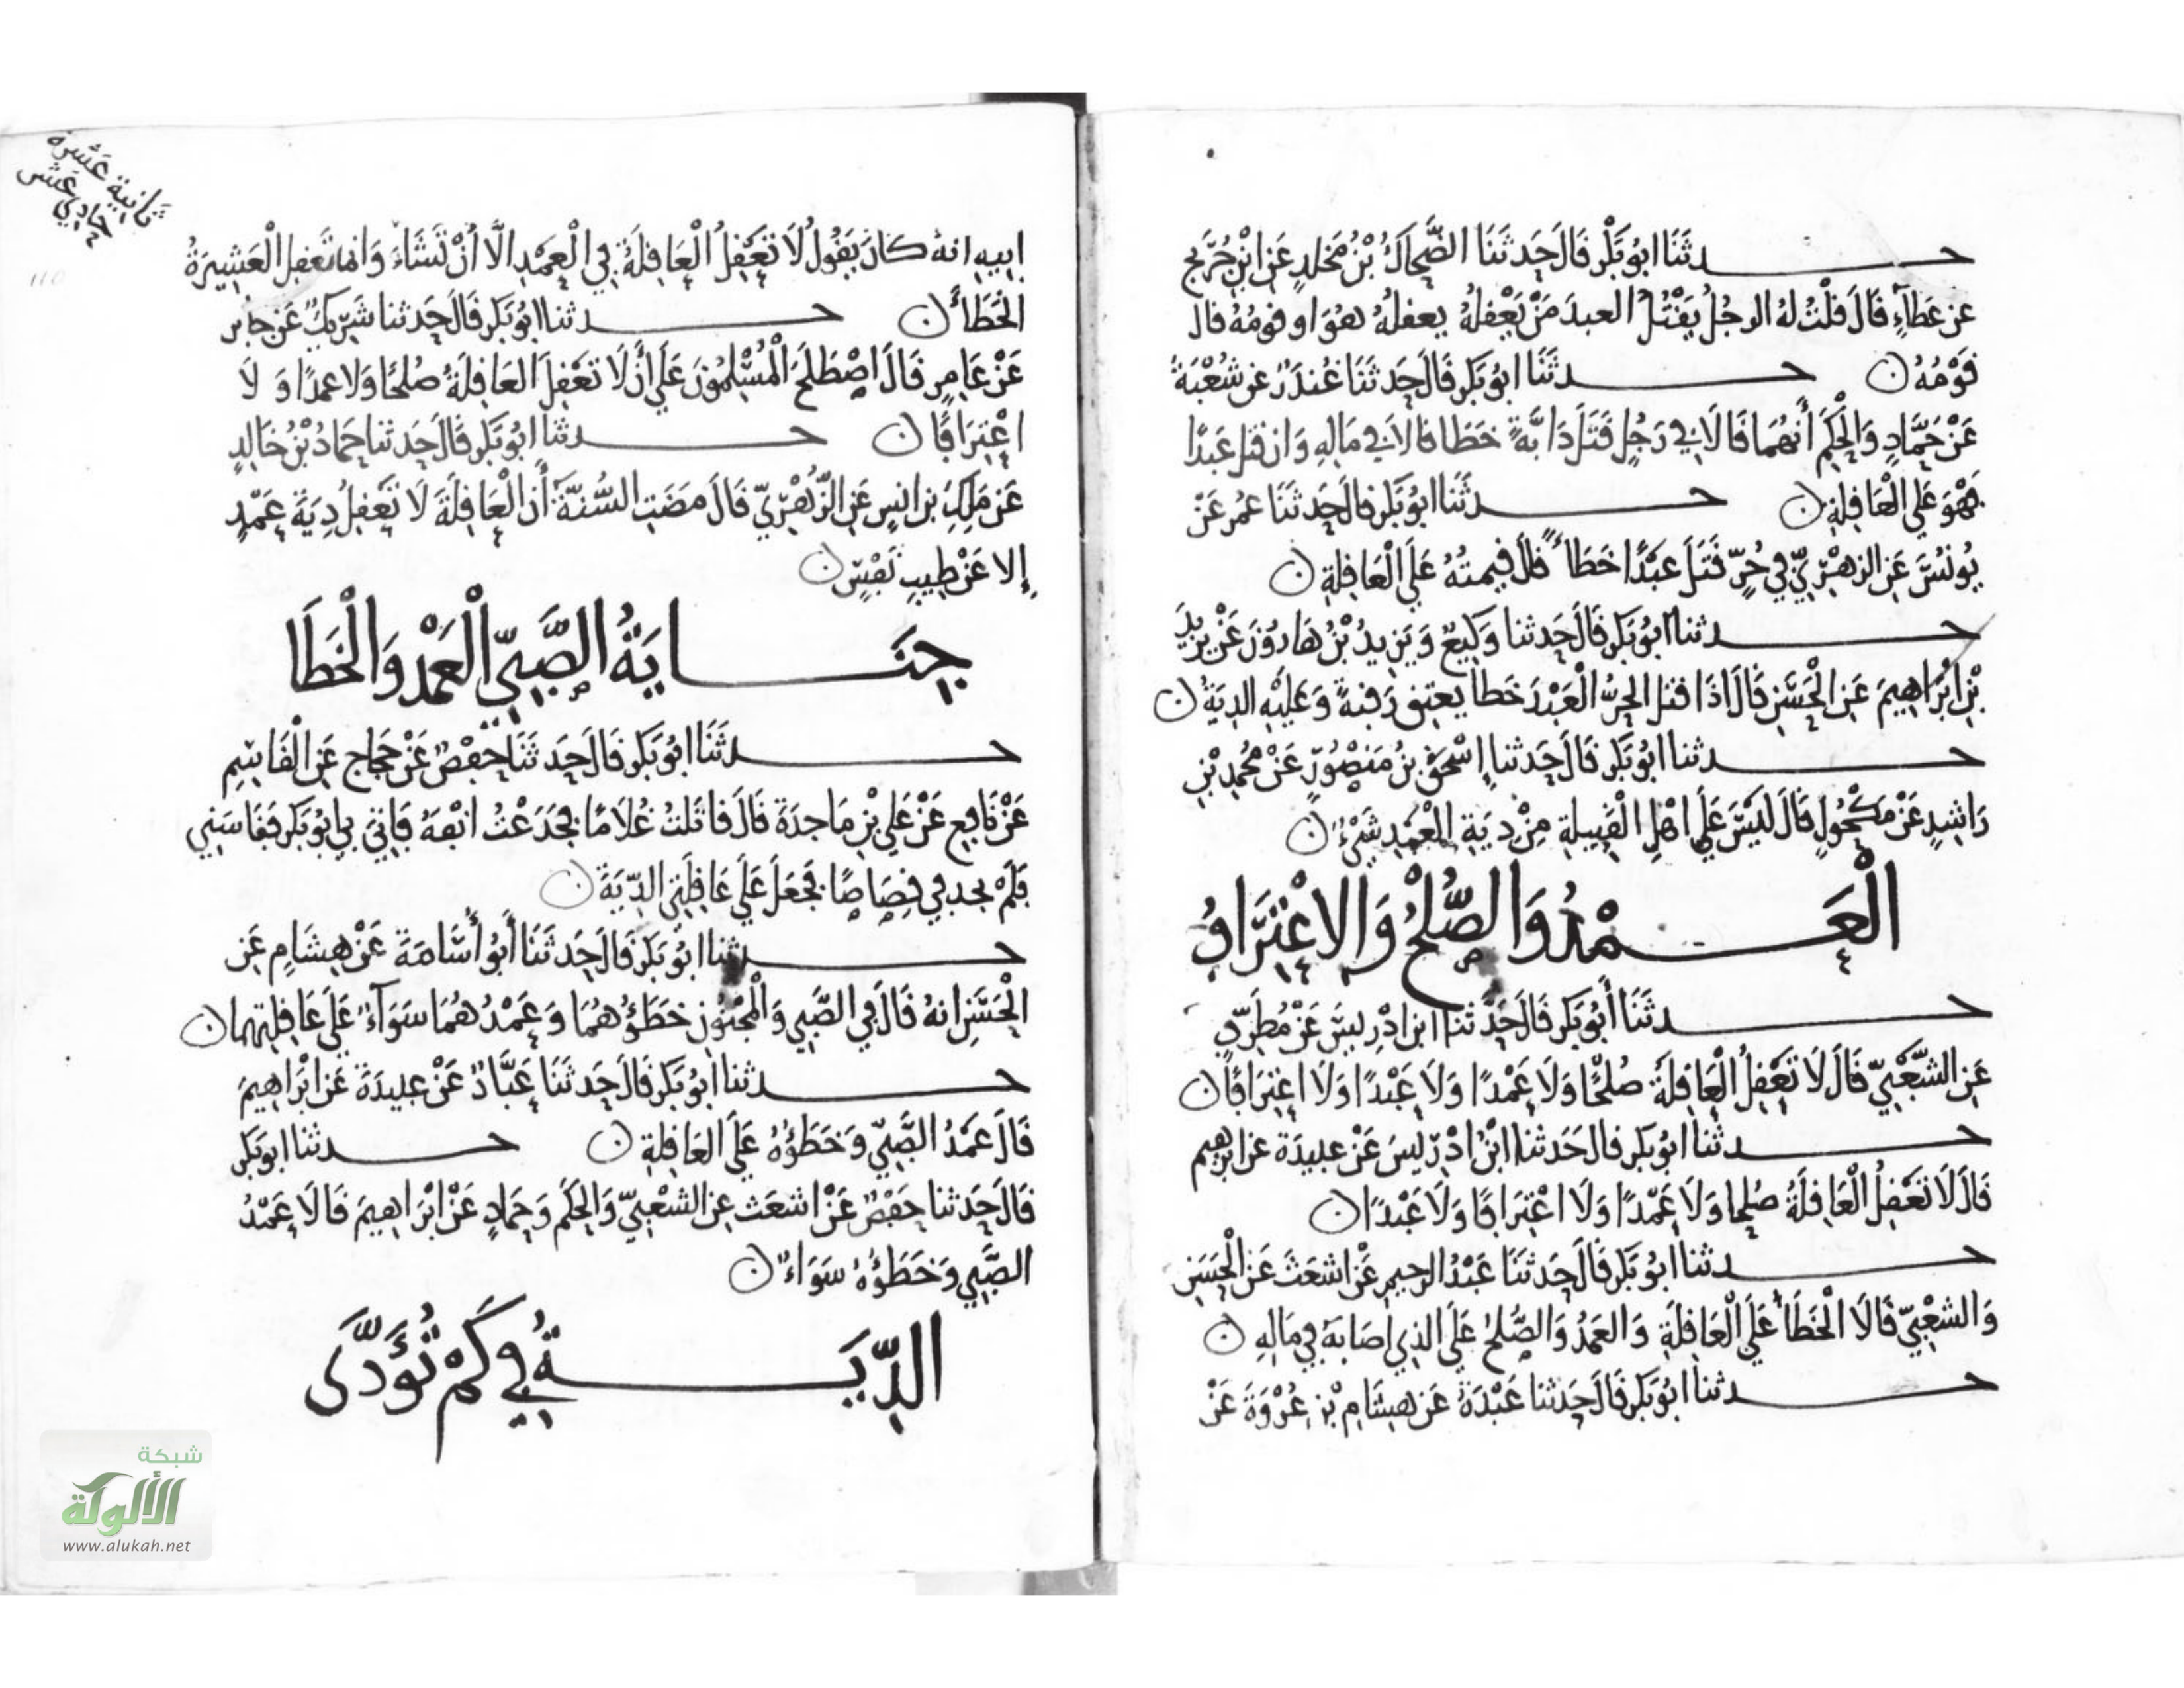 حدثنا ابو بكر قال حدثنا الضحاك بن مخلد عن ابن جريج
عن عطاء قال قلت له الرجل يقتل العبد من يعقله يعقله هو او قومه قال
قومه
حدثنا ابو بكر قال حدثنا غندر عن شعبة
عن حماد والحكم أنهما قالا في رجل قتل دابة خطا قالا في ماله وان قتل عبدا
فهو على العاقلة
حدثنا ابو بكر قال حدثنا عمر عن
يونس عن الزهري في حر قتل عبدا خطأ قال قيمته على العاقلة
حدثنا ابو بكر قال حدثنا وكيع ويزيد بن هارون عن يزيد
بن ابراهيم عن الحسن قال اذا قتل الحر العبد خطأ يعتق رقبة وعليه الدية
حدثنا ابو بكر قال حدثنا إسحق بن منصور عن محمد بن
راشد عن مكحول قال ليس على اهل القبيلة من دية العمد شيء
العمد والصلح والاعتراف
حدثنا أبو بكر قال حدثنا ابن ادريس عن مطرف
عن الشعبي قال لا تعقل العاقلة صلحا ولا عمدا ولا عبدا ولا اعترافا
حدثنا ابو بكر قال حدثنا ابن ادريس عن عبيدة عن ابرهيم
قال لا تعقل العاقلة صلحا ولا عمدا ولا اعترافا ولا عبدا
حدثنا ابو بكر قال حدثنا عبد الرحيم عن اشعث عن الحسن
والشعبي قالا الخطأ على العاقلة والعمد والصلح على الذي اصابه في ماله
حدثنا ابو بكر قال حدثنا عبدة عن هشام بن عروة عن
ثانية عشرة
حادي عشر
ابيه انه كان يقول لا تعقل العاقلة في العمد الا أن تشاء وانما تعقل العشيرة
الخطأ
حدثنا ابو بكر قال حدثنا شريك عن جابر
عن عامر قال اصطلح المسلمون على أن لا تعقل العاقلة صلحا ولا عمدا ولا
اعترافا
حدثنا ابو بكر قال حدثنا حماد بن خالد
عن ملك بن انس عن الزهري قال مضت السنة أن العاقلة لا تعقل دية عمد
إلا عن طيب نفس
جناية الصبي العمد والخطا
حدثنا ابو بكر قال حدثنا حفص عن حجاج عن القاسم
عن نافع عن علي بن ماجدة قال قاتلت غلاما فجدعت انفه فاتي بي ابو بكر فقاسني
فلم يجد في قصاصا فجعل على عاقلتي الدية
حدثنا ابو بكر قال حدثنا أبو أسامة عن هشام عن
الحسن انه قال في الصبي والمجنون خطؤهما وعمدهما سواء على عاقلتهما
حدثنا ابو بكر قال حدثنا عباد عن عبيدة عن ابراهيم
قال عمد الصبي وخطؤه على العاقلة
حدثنا ابو بكر
قال حدثنا حفص عن اشعث عن الشعبي والحكم وحماد عن ابراهيم قالا عمد
الصبي وخطؤه سواء
الدية في كم تؤدى
شبكة
الألوكة
www.alukah.net